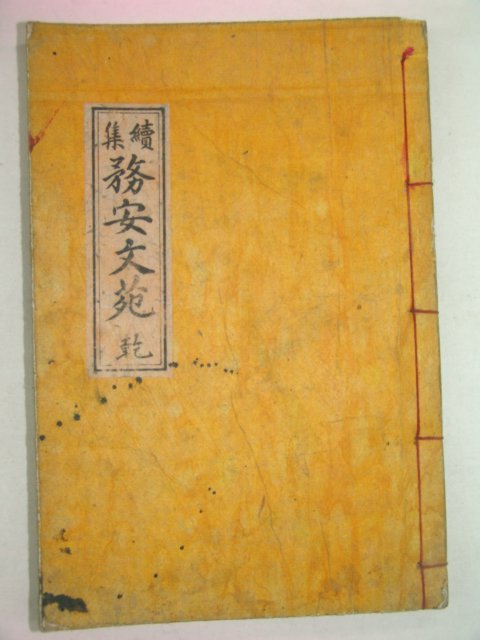 續集
務安文苑
乾